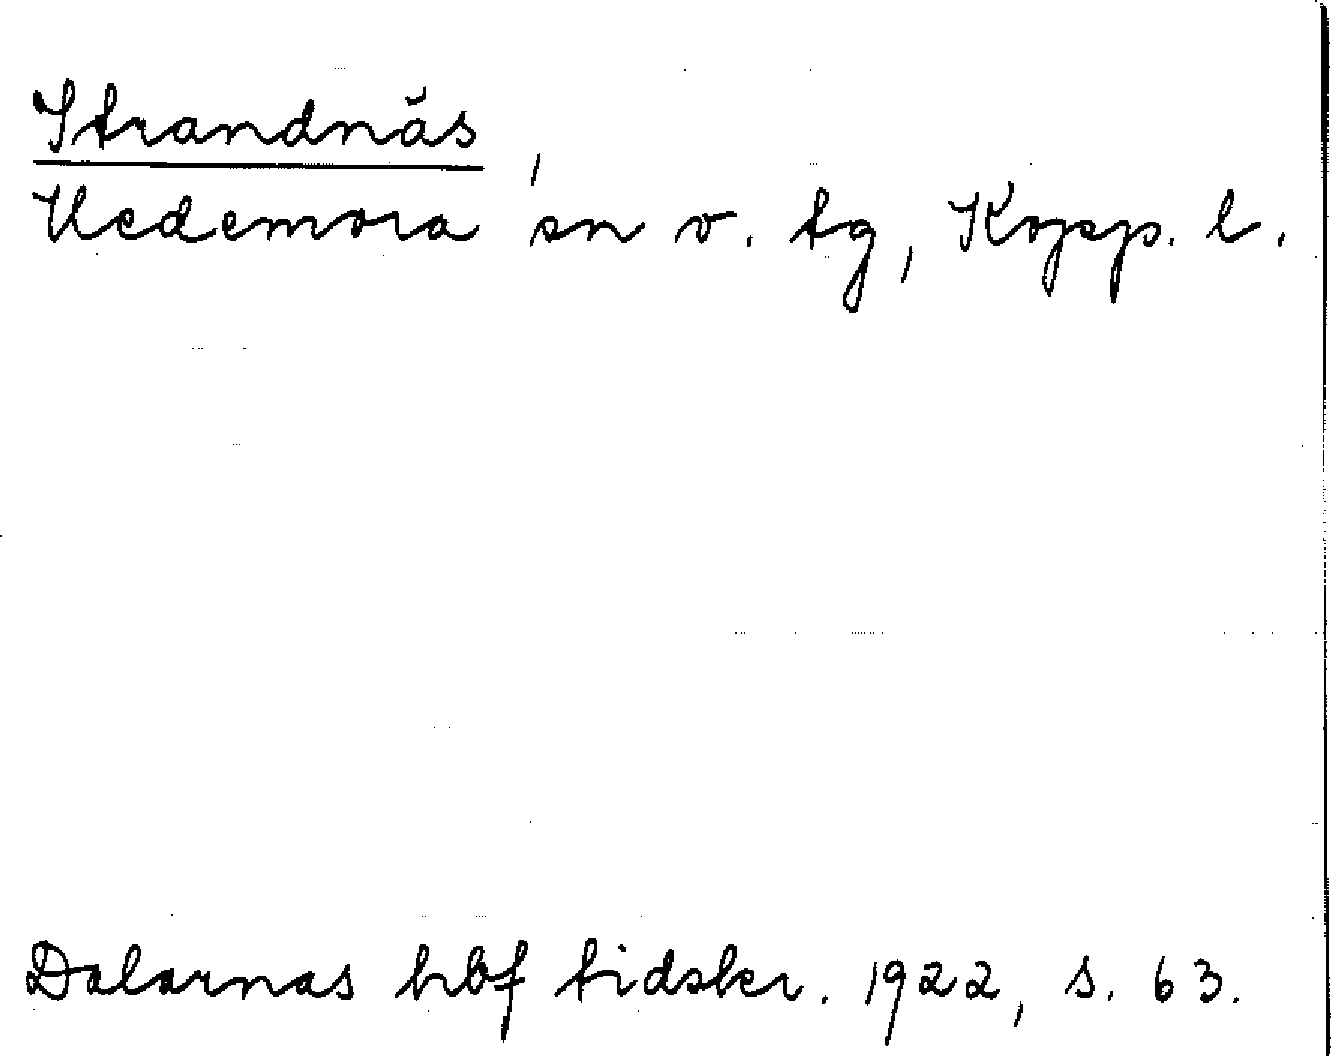 Strandnäs
Hedemora sn v. tg, Kopp. l.
Dalarnas hbf tidskr. 1922, s. 63.